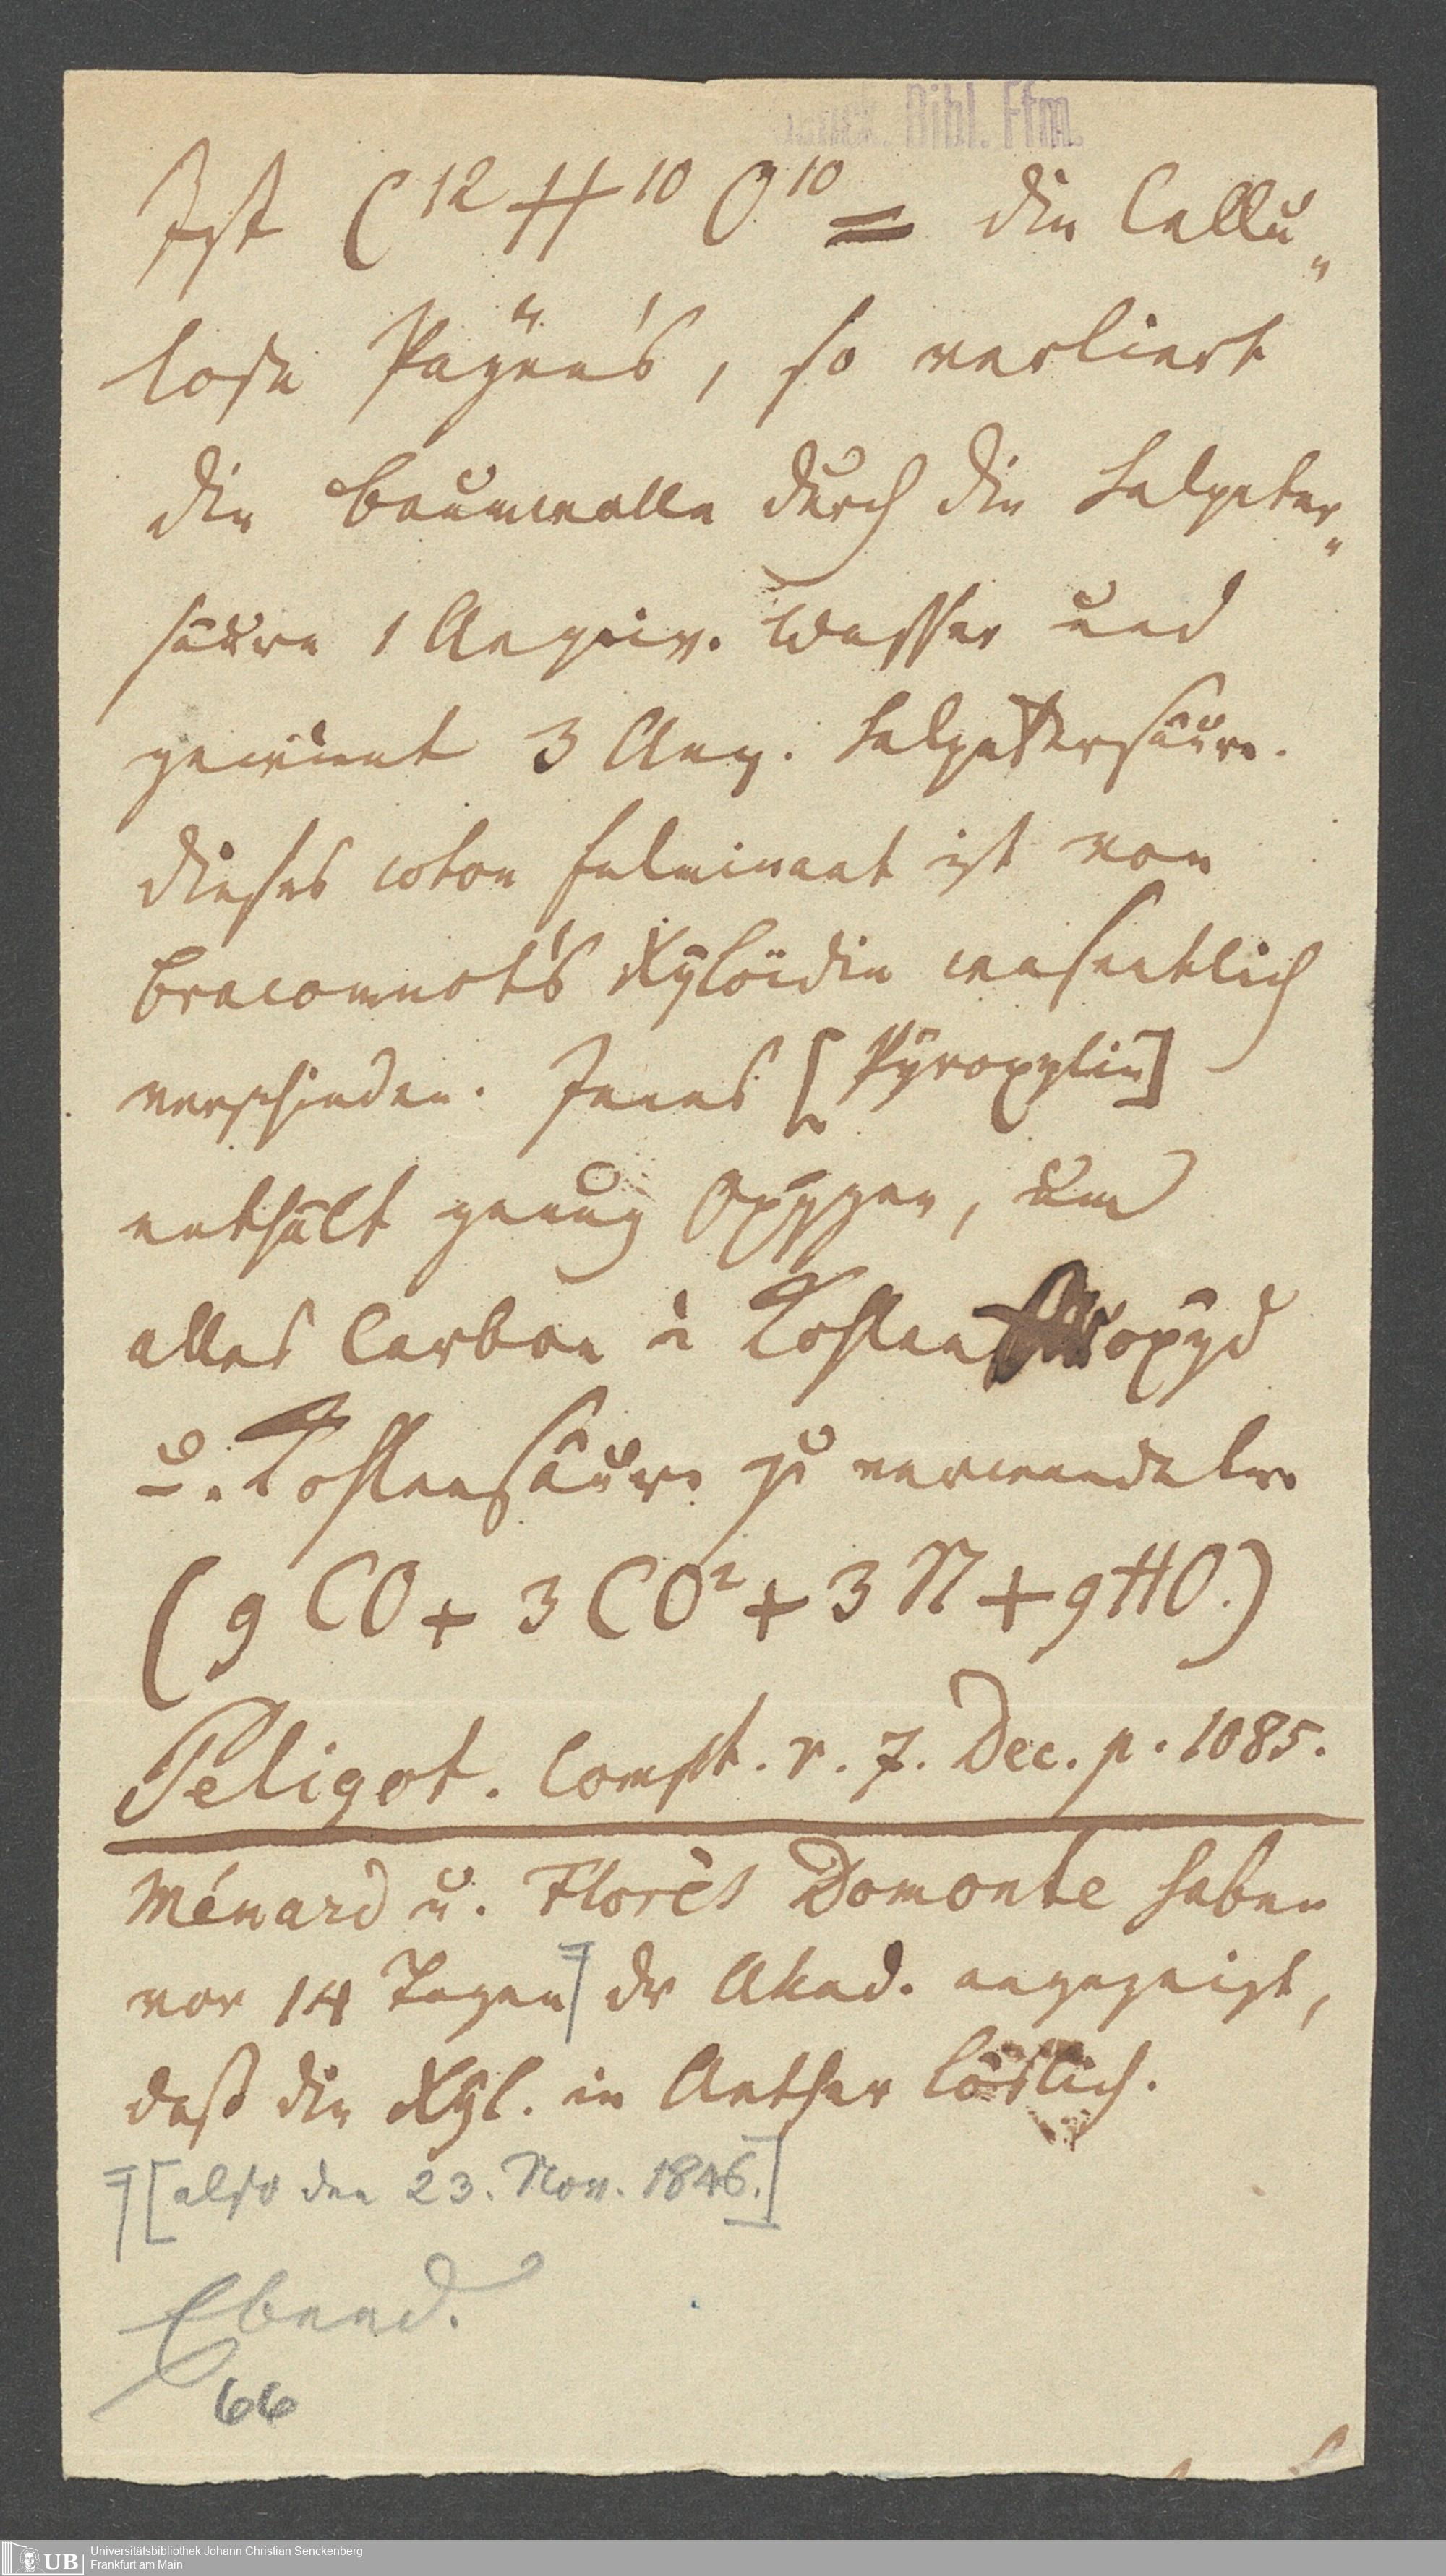 Senck. Bibl. Ffm.
Ist C¹² H¹⁰ O¹⁰ = die Cellu„
lose Payen's, so verliert
die Baumwolle durch die Salpeter„
säure 1 Aequiv. Wasser und
gewinnt 3 Aeq. Salpetersäure.
Dieses coton fulminant ist von
Braconnot's Xyloïdin wesentlich
verschieden. Jenes [Pyroxylin]
enthält genug Oxygen, um
alles Carbon in Kohlenoxyd
u. Kohlensäure zu verwandeln
(9 CO + 3 CO² + 3 N + 9 HO.)
Peligot. Compt. r. 7. Dec. p. 1085.
Ménard u. Florès Domonte haben
vor 14 Tagen der Akad. angezeigt,
daß die Xyl. in Aether löslich.
[also den 23. Nov. 1846.]
Ebend.
66
UB Universitätsbibliothek Johann Christian Senckenberg
Frankfurt am Main